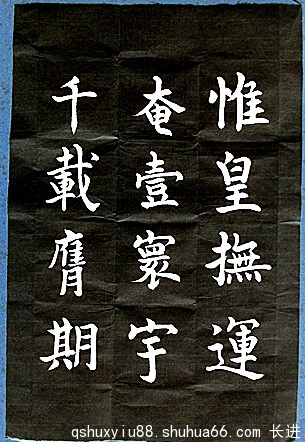 惟皇撫運
奄壹寰宇
千載膺期
qshuxyiu88.shuhua66.com 长进